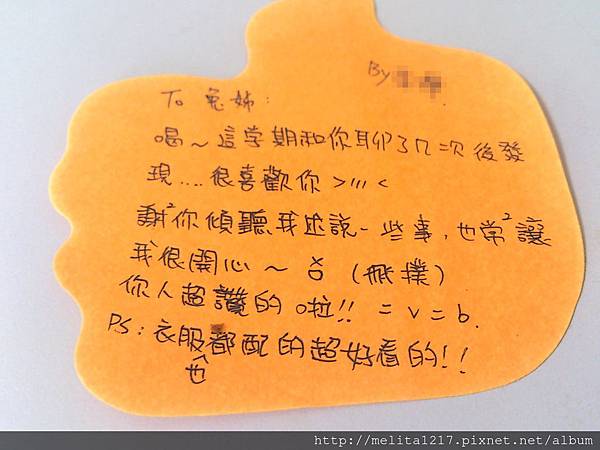 By
To 兔姊:
喝~這学期和你聊了几次後發
現....很喜歡你>///<
謝²你傾聽我述說一些事,也常²讓
我很開心~ (飛撲)
你人超讚的啦!! =v=b.
PS:衣服都配的超好看的!!
也
http://melita1217.pixnet.net/album